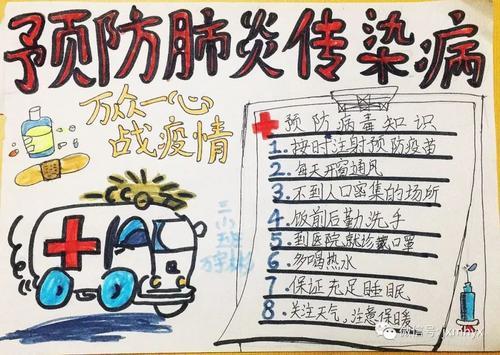 预防肺炎传染病
万众一心
战疫情
预防病毒知识
1.按时注射预防疫苗
2.每天开窗通风
3.不到人口密集的场所
4.饭前后勤洗手
5.到医院就诊戴口罩
6.多喝热水
7.保证充足睡眠
8.关注天气，注意保暖